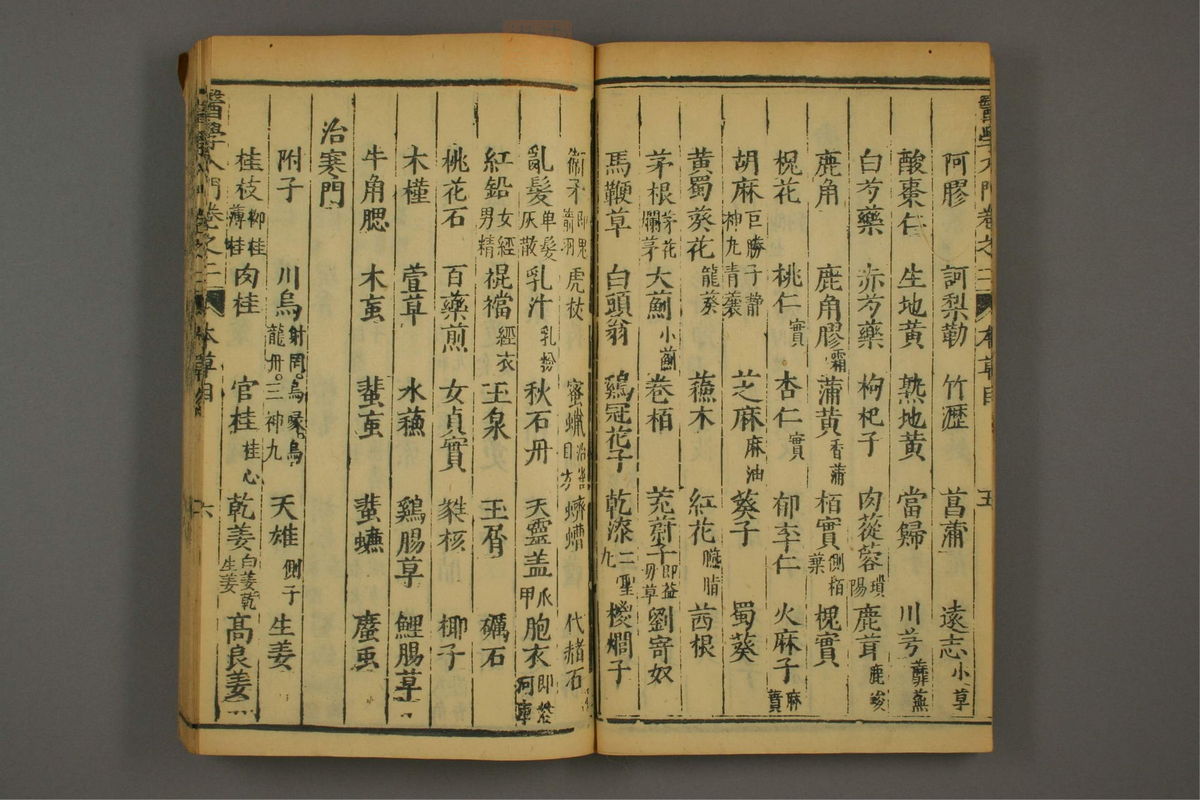 醫學入門卷之二 本草目 五
阿膠 訶梨勒 竹瀝 菖蒲 遠志小草
酸棗仁 生地黃 熟地黃 當歸 川芎蘼蕪
白芍藥 赤芍藥 枸杞子 肉蓯蓉瑣陽 鹿茸鹿峻
鹿角 鹿角膠霜 蒲黃香蒲 栢實側栢葉 槐實
槐花 桃仁實 杏仁實 郁李仁 火麻子麻蕡
胡麻巨勝子靜神丸青蘘 芝麻麻油 葵子 蜀葵
黃蜀葵花 龍葵 蘇木 紅花臙脂 茜根
茅根茅花爛茅 大薊小薊 卷栢 茺蔚子即益母草 劉寄奴
馬鞭草 白頭翁 鷄冠花子 乾漆二聖丸 椶櫚子
衛矛即鬼箭羽 虎杖 蜜蠟 蠐螬 代赭石
亂髮单髮灰散 乳汁乳粉 秋石丹 天靈盖爪甲 胞衣即紫河車
紅鉛女經男精 裩襠經衣 玉泉 玉屑 礪石
桃花石 百藥煎 女貞實 椰子
木槿 萱草 水蘇 鷄腸草 鯉腸草
牛角腮 木䖟 蜚䖟 蜚蠊 䗪䖝
治寒門
附子 川烏射罔烏喙烏龍丹三神丸 天雄側子 生姜
桂枝柳桂薄桂 肉桂 官桂桂心 乾姜白姜乾生姜 高良姜
醫學入門卷之二 本草目 六